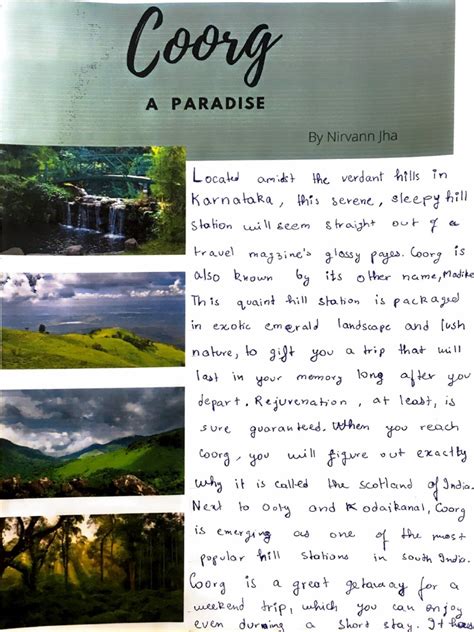 Coorg
A PARADISE
By Nirvann Jha
Located amidst the verdant hills in
Karnataka, this serene, sleepy hill
station will seem straight out of a
travel magzine's glossy pages. Coorg is
also known by its other name, Madike
This quaint hill station is packaged
in exotic emerald landscape and lush
nature, to gift you a trip that will
last in your memory long after you
depart. Rejuvenation, at least, is
sure guaranteed. When you reach
Coorg, you will figure out exactly
why it is called the scotland of India.
Next to Ooty and Kodaikanal, Coorg
is emerging as one of the most
popular hill stations in south India.
Coorg is a great getaway for a
weekend trip, which you can enjoy
even during a short stay. It has